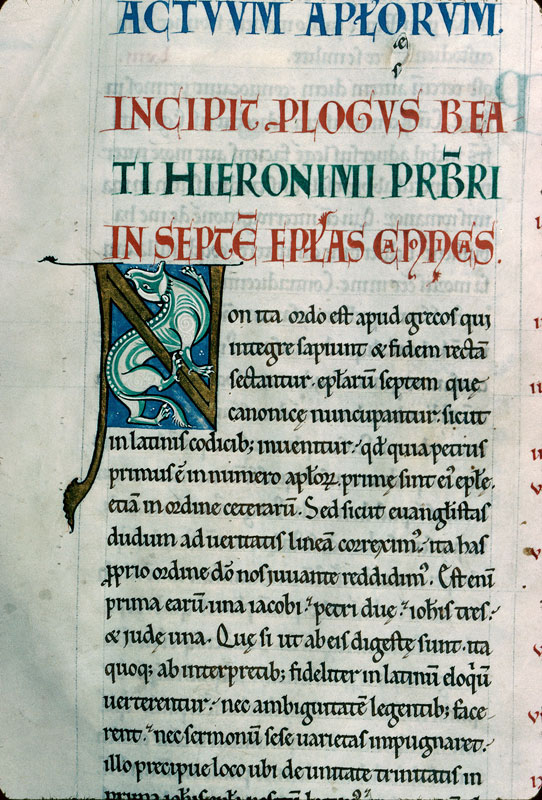 ACTVVM APŁORVM.
INCIPIT PLOGVS BEA
TI HIERONIMI PRB̄RI
IN SEPTĒ EPŁAS CANNICAS.
Non ita ordo est apud grecos qui
integre sapiunt & fidem rectā
sectantur. epłarū septem quę
canonicę nuncupantur. sicut
in latinis codicib; inuenitur. qđ quia petrus
primus ē in numero apłoꝝ. primę sint ei᾽ epłę.
etiā in ordine ceterarū. Sed sicut euanglistas
dudum ad ueritatis lineā correxim᾽. ita has
ꝓprio ordine dō nos iuuante reddidim᾽. Est enī
prima earū. una iacobi. petri duę. iohis tres.
& iudę una. Quę si ut ab eis digestę sunt. ita
quoq; ab interpretib; fideliter in latinū eloq̇ū
uerterentur. nec ambiguitatē legentib; face
rent. nec sermonū sese uarietas impugnaret.
illo precipue loco ubi de unitate trinitatis in
prima iohis